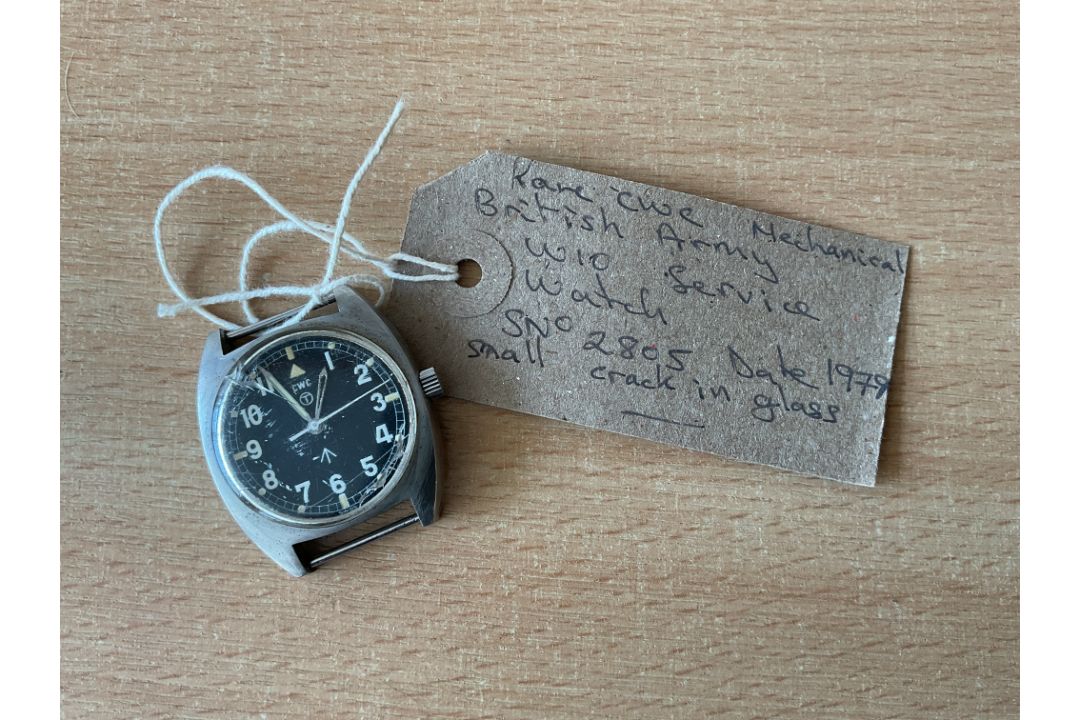 Rare CWC Mechanical
British Army
W10 Service
Watch
SNº 2805 Date 1979
small crack in glass
CWC
T
1
2
3
4
5
6
7
8
9
10
11